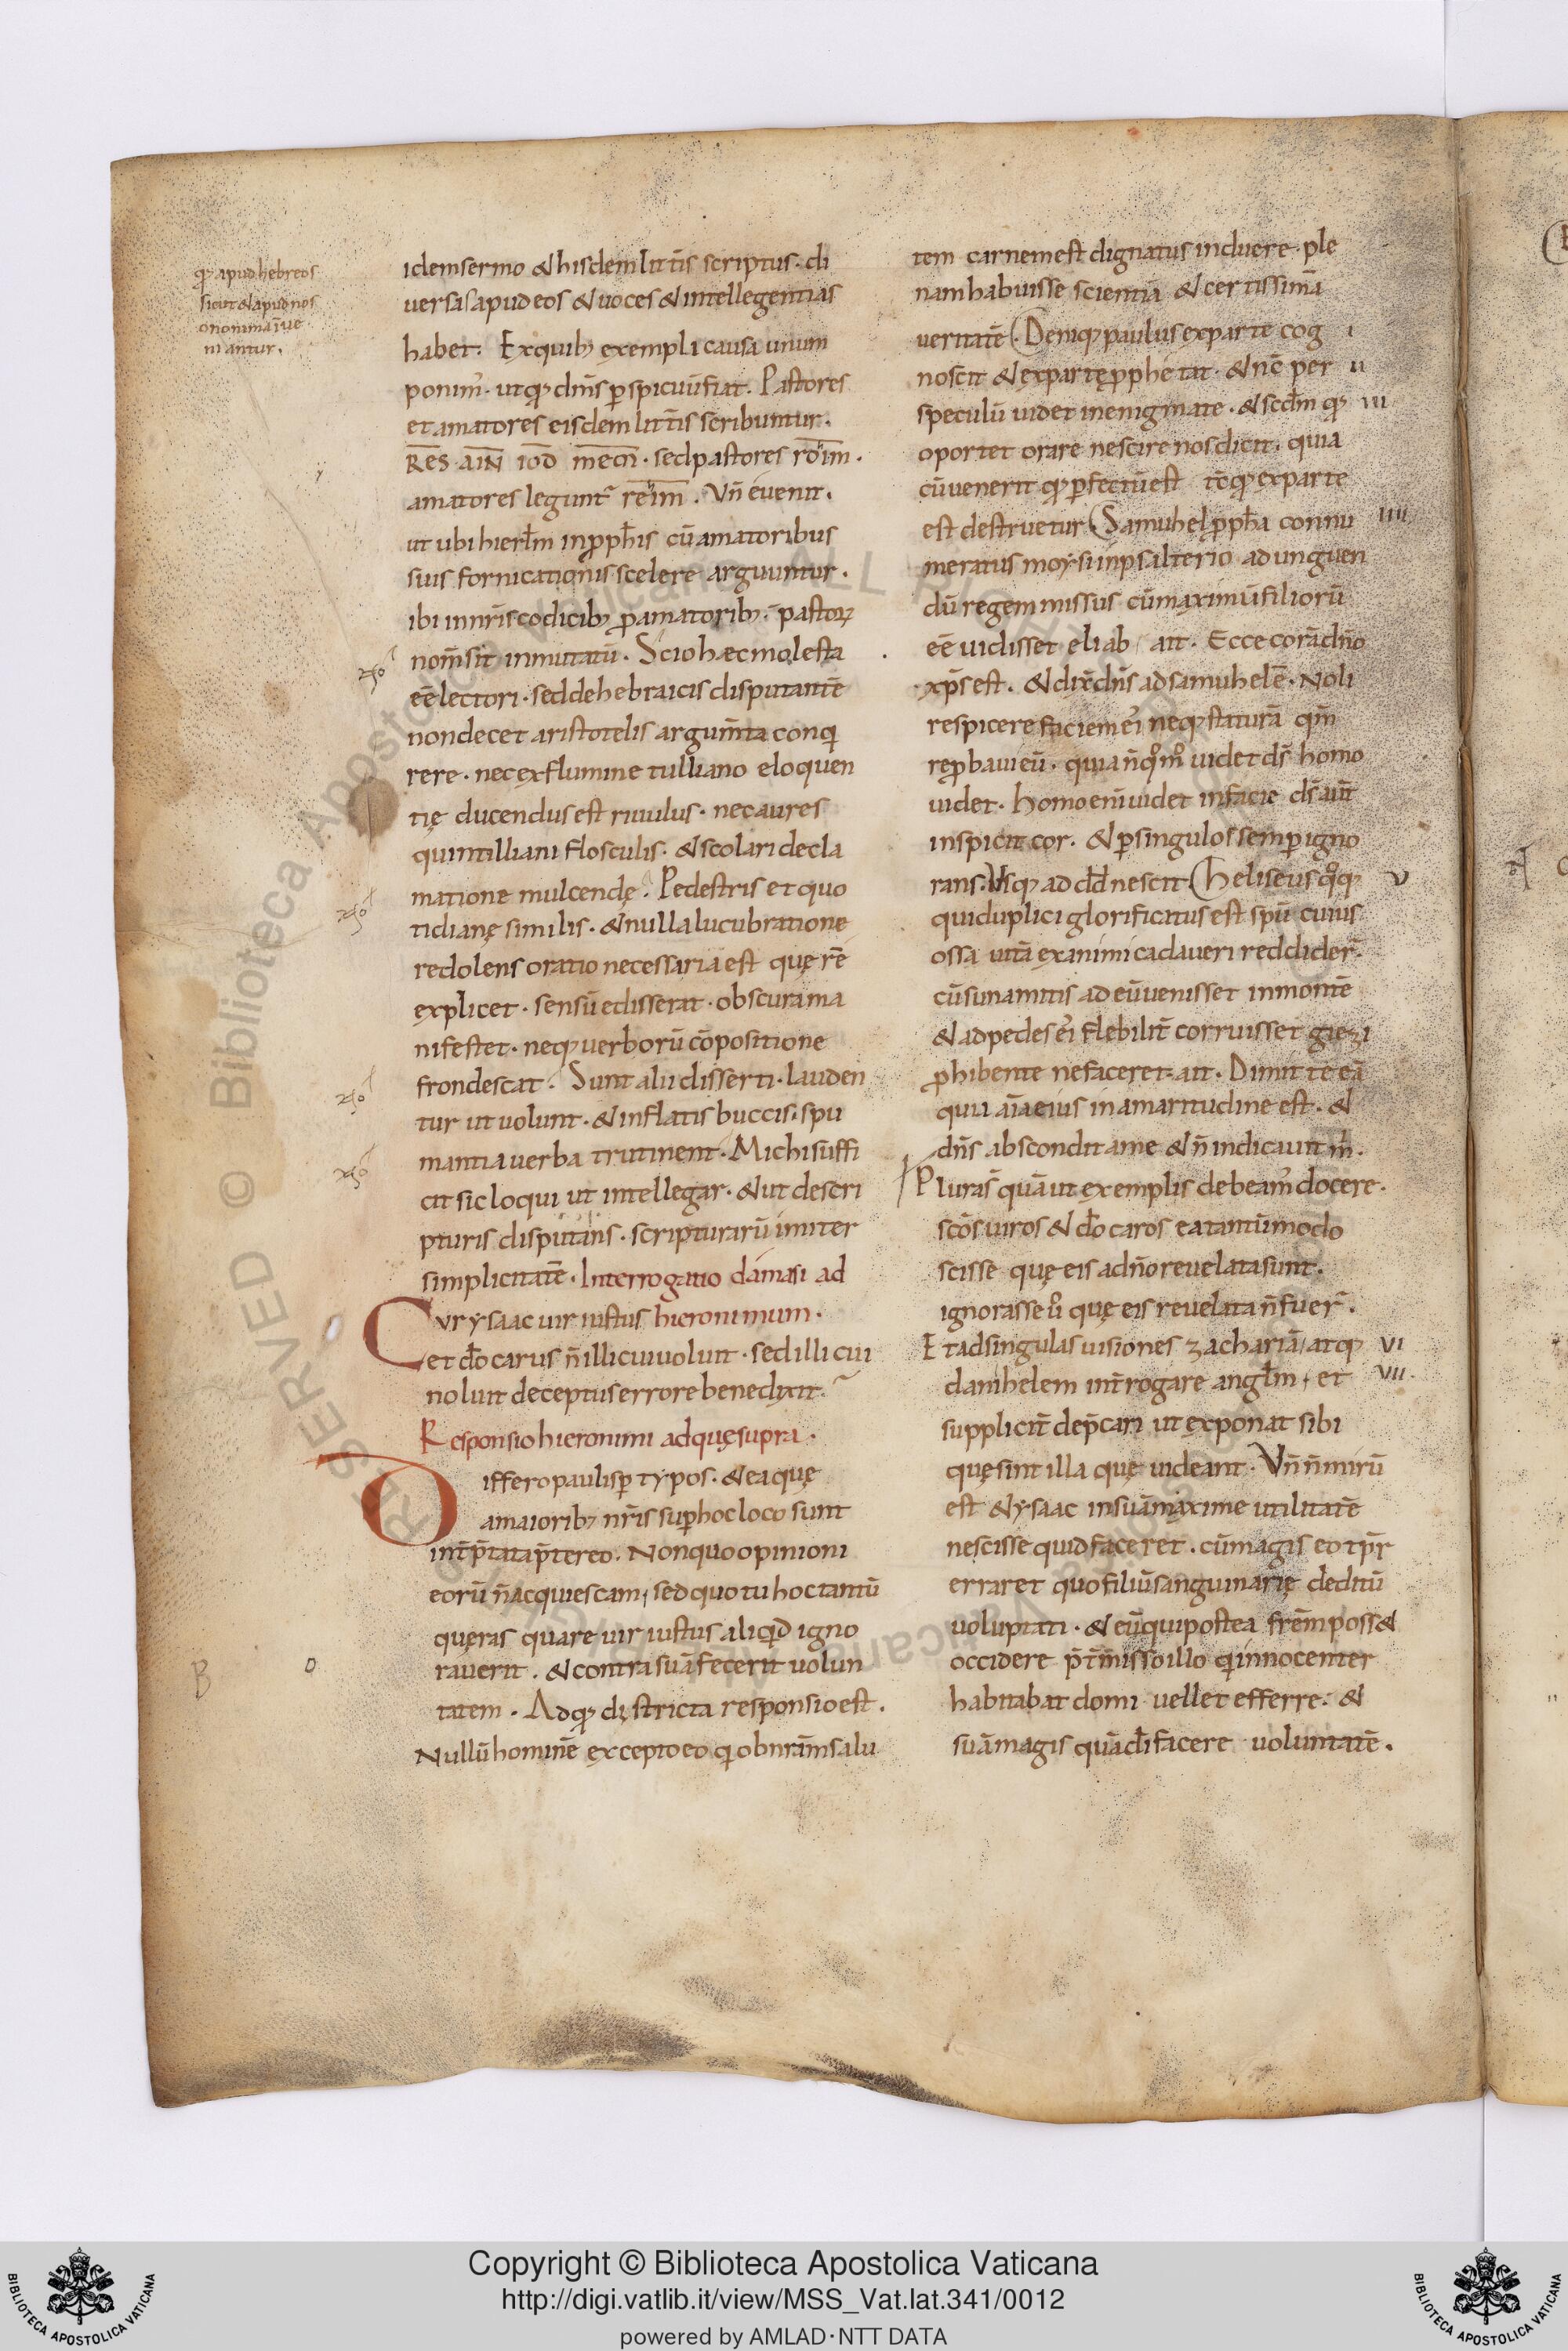 qđ apud hebreos
sicut & apud nos
ononima īue
niantur.
idem sermo & hisdem litt̄is scriptus. di
uersas apud eos & uoces & intellegentias
habet. Ex quib; exempli causa unum
ponim᾿. ut qđ dicim̄s p̄spicuū fiat. Pastores
et amatores eisdem litt̄is scribuntur.
RES. AIN IOD MEM. sed pastores roīm.
amatores legunt᾿ reīm. Vn̄ euenit.
ut ubi hierłm in p̄pħis cū amatoribus
suis fornicationis scelere arguuntur.
ibi in nr̄is codicib; p̄ amatorib; pastorꝝ
nom̄ sit inmutatū. Scio hæc molesta
eē lectori. sed de hebraicis disputantē
non decet aristotelis argum̄ta conqi
rere. nec ex flumine tulliano eloquen
tię ducendus est riuulus. nec aures
quintilliani flosculis. & scolari decla
matione mulcendę. Pedestris et quo
tidianę similis. & nulla lucubratione
redolens oratio necessaria est quę rē
explicet. sensū edisserat. obscura ma
nifestet. neq; uerborū cōpositione
frondescat. Sunt alii disserti. lauden
tur ut uolunt. & inflatis buccis. spu
mantia uerba trutinent. Michi suffi
cit sic loqui ut intellegar. & ut de scri
pturis disputans. scripturarū imiter
simplicitatē. Interrogatio damasi ad
Cur ysaac uir iustus hieronimum.
et dō carus n̄ illi cui uoluit. sed illi cui
noluit deceptus errore benedixit.
Responsio hieronimi ad quę supra.
Differo paulisp̄ typos. & ea quę
a maiorib; nr̄is sup̄ hoc loco sunt
int̄p̄tata p̄tereo. Non quo opinioni
eorū n̄ acquiescam, sed quo tu hoc tantū
quęras quare uir iustus aliqid igno
rauerit. & contra suā fecerit uolun
tatem. Ad qđ districta responsio est.
Nullū hominē excepto eo qi ob nr̄am salu
B o
tem carnem est dignatus induere. ple
nam habuisse scientiā & certissimā
ueritatē. Deniq; paulus ex parte cog i
noscit & ex parte p̄phetat. & nc̄ per ii
speculū uidet in enigmate. & scdm qđ iii
oportet orare nescire nos dicit. quia
cū uenerit qđ p̄fectū est tc̄ qđ ex parte
est destruetur. Samuhel p̄pħa connu iiii
meratus moysi in psalterio ad unguen
dū regem missus cū maximū filiorū
eē uidisset eliab, ait. Ecce corā dn̄o
xp̄s est. & dix̄ dn̄s ad samuhelē. Noli
respicere faciem ei᾿ neq; staturā qm̄
rep̄baui eū. quia n̄ quom̄ uidet ds̄ homo
uidet. homo eni᾿ uidet in facie ds̄ aut̄
inspicit cor. & p̄ singulos semp̄ igno
rans. Usq; ad dd̄ nescit. Heliseus qoq; v
qui duplici glorificatus est spū cuius
ossa uitā exanimi cadaueri reddider᾿
cū sunamitis ad eū uenisset in montē
& ad pedes ei᾿ flebilit̄ corruisset giezi
p̄hibente ne faceret. ait. Dimitte eā
quia aīa eius in amaritudine est. &
dn̄s abscondit a me & n̄ indicauit m̄.
Plura s̄ quā ut exemplis debeam᾿ docere.
scōs uiros & dō caros ea tantūmodo
scisse quę eis a dn̄o reuelata sunt.
ignorasse u᾿ quę eis reuelata n̄ fuer᾿.
Et ad singulas uisiones zachariā, atq; vi
danihelem int̄rogare angłm, et vii.
supplicit̄ dep̄cari ut exponat sibi
quę sint illa quę uideant. Vn̄ n̄ mirū
est & ysaac in suā maxime utilitatē
nescisse quid faceret. cū magis eo tp̄r
erraret quo filiū sanguinarię deditū
uoluptati. & eū qui postea frēm poss&
occidere p̄t̄misso illo qi innocenter
habitabat domi uellet efferre. &
suā magis quā dī facere uoluntatē.
Copyright © Biblioteca Apostolica Vaticana
http://digi.vatlib.it/view/MSS_Vat.lat.341/0012
powered by AMLAD·NTT DATA
BIBLIOTECA APOSTOLICA VATICANA
BIBLIOTECA APOSTOLICA VATICANA